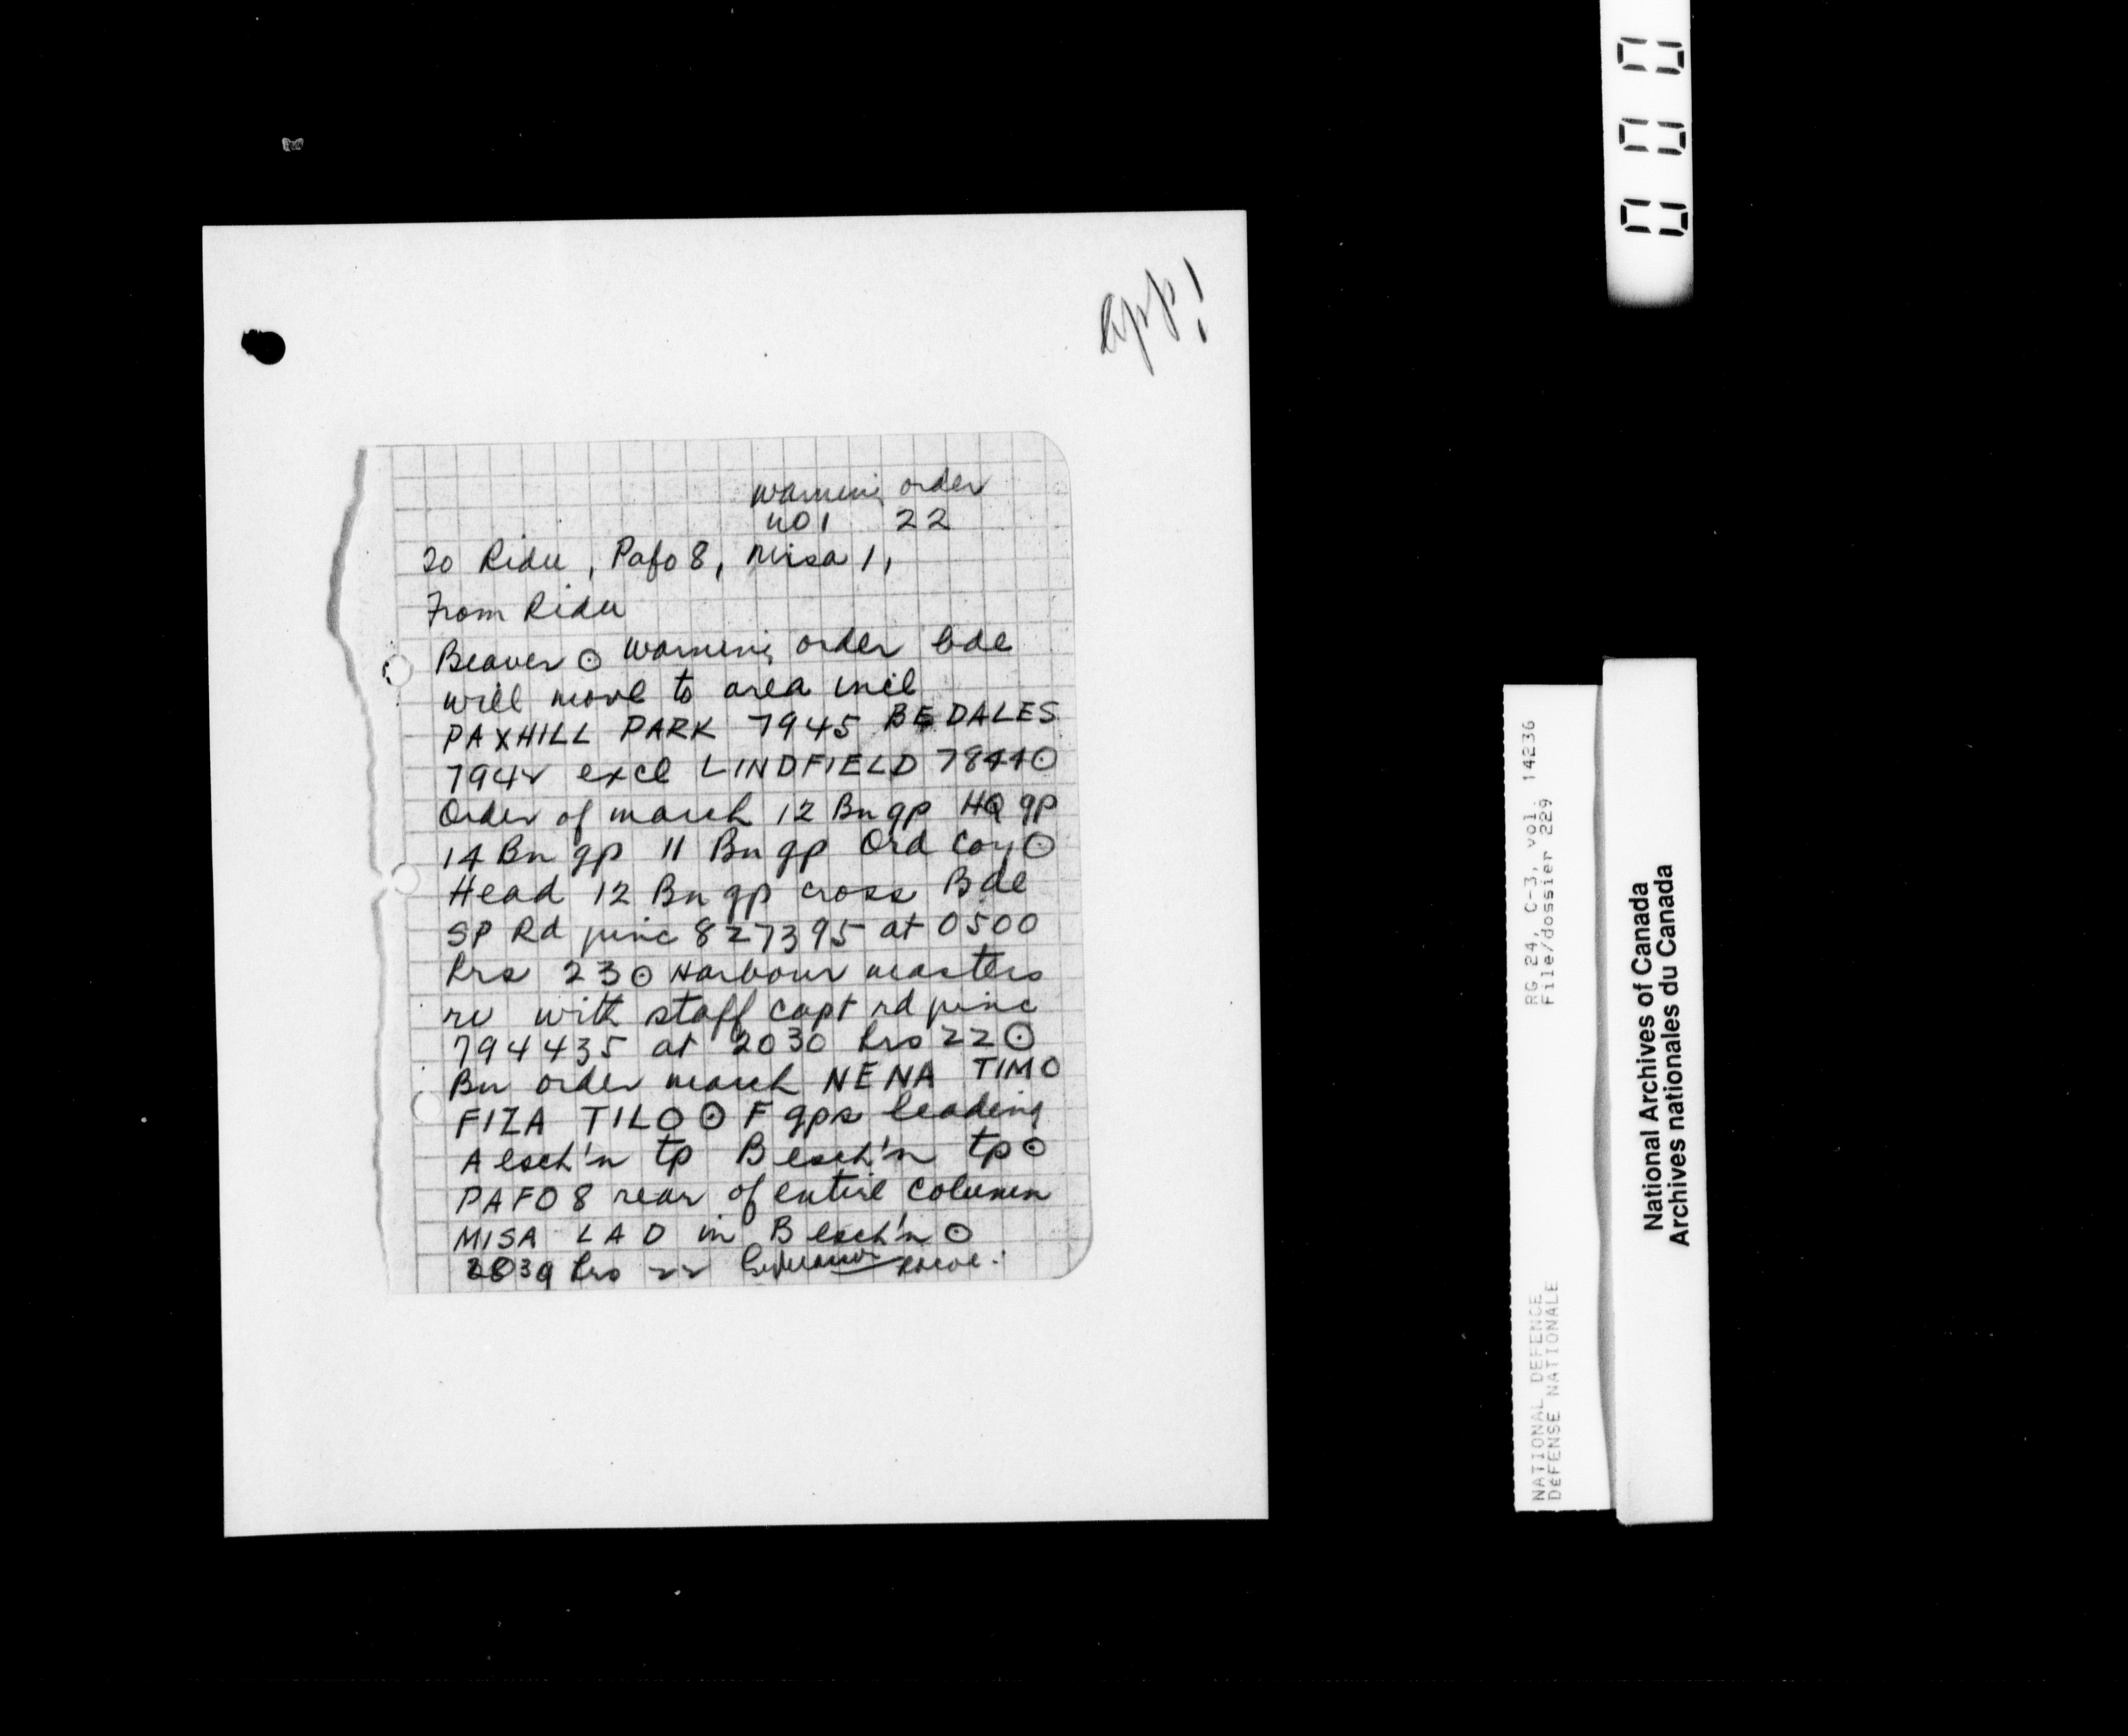 App!
Warning order
U01 22
To Ridu, Pafo 8, Misa 1,
From Ridu
Beaver ⊙ Warning order bde
will move to area incl
PAXHILL PARK 7945 BEDALES
7942 excl LINDFIELD 7844⊙
Order of march 12 Bn gp HQ gp
14 Bn gp 11 Bn gp Ord Coy ⊙
Head 12 Bn gp cross Bde
SP Rd junc 827395 at 0500
hrs 23⊙ Harbour masters
rv with staff capt rd junc
794435 at 2030 hrs 22⊙
Bn order march NENA TIMO
FIZA TILO ⊙ F gps leading
A esch'n tp B esch'n tp⊙
PAFO 8 rear of entire column
MISA LAD in B esch'n ⊙
hrs 22
000
RG 24, C-3, vol. 14236
File/dossier 229
NATIONAL DEFENCE
DéFENSE NATIONALE
National Archives of Canada
Archives nationales du Canada